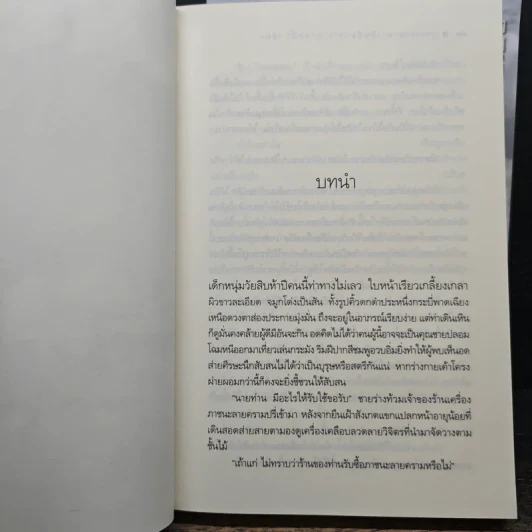 บทนำ
เด็กหนุ่มวัยสิบห้าปีคนนี้ท่าทางไม่เลว ใบหน้าเรียวเกลี้ยงเกลา
ผิวขาวละเอียด จมูกโด่งเป็นสัน ทั้งรูปคิ้วตกดำประหนึ่งกระบี่พาดเฉียง
เหนือดวงตาส่องประกายมุ่งมั่น ถึงจะอยู่ในอาภรณ์เรียบง่าย แต่ท่าเดินเหิน
ก็ดูมั่นคงคล้ายผู้ดีมีอันจะกิน อดคิดไม่ได้ว่าคนผู้นี้อาจจะเป็นคุณชายปลอม
โฉมหนีออกมาเที่ยวเล่นกระมัง ริมฝีปากสีชมพูอวบอิ่มยิ่งทำให้ผู้พบเห็นอด
ส่ายศีรษะนึกสับสนไม่ได้ว่าเป็นบุรุษหรือสตรีกันแน่ หากร่างกายเค้าโครง
ฝ่ายผอมกว่านี้ก็คงจะยิ่งชี้ชวนให้สับสน
"นายท่าน มีอะไรให้รับใช้ขอรับ" ชายร่างท้วมเจ้าของร้านเครื่อง
ภาชนะลายครามปรี่เข้ามา หลังจากยืนเฝ้าสังเกตแขกแปลกหน้าอายุน้อยที่
เดินสอดส่ายสายตามองดูเครื่องเคลือบลวดลายวิจิตรที่นำมาจัดวางตาม
ชั้นไม้
"เถ้าแก่ ไม่ทราบว่าร้านของท่านรับซื้อภาชนะลายครามหรือไม่"